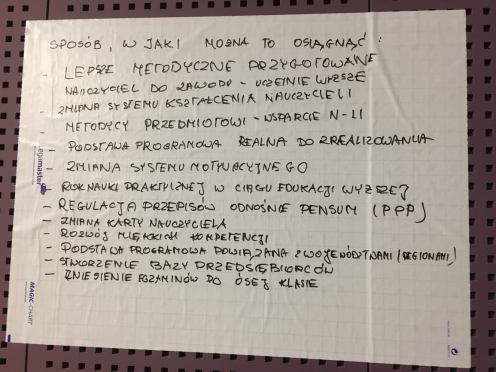 SPOSÓB, W JAKI MOŻNA TO OSIĄGNĄĆ:
- LEPSZE METODYCZNE PRZYGOTOWANIE
NAUCZYCIELI DO ZAWODU - UCZELNIE WYŻSZE
- ZMIANA SYSTEMU KSZTAŁCENIA NAUCZYCIELI
- METODYCY PRZEDMIOTOWI - WSPARCIE N-LI
- PODSTAWA PROGRAMOWA REALNA DO ZREALIZOWANIA
- ZMIANA SYSTEMU MOTYWACYJNEGO
- ROK NAUKI PRAKTYCZNEJ W CIĄGU EDUKACJI WYŻSZEJ
- REGULACJA PRZEPISÓW ODNOŚNIE PENSUM (PPP)
- ZMIANA KARTY NAUCZYCIELA
- ROZWÓJ MIĘKKICH KOMPETENCJI
- PODSTAWA PROGRAMOWA POWIĄZANA Z WOJEWÓDZTWAMI (REGIONAMI)
- STWORZENIE BAZY PRZEDSIĘBIORCÓW
- ZNIESIENIE EGZAMINÓW PO ÓSEJ KLASIE
legamaster
MAGIC-CHART